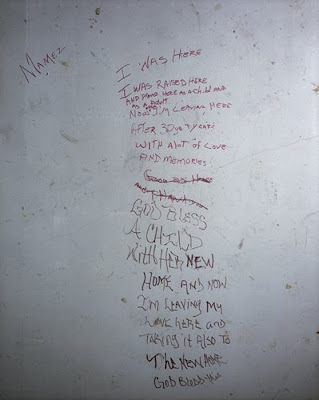 Mamez
I WAS HERE
I WAS RAISED HERE
AND HERE AS A CHILD AND
AS A
NOW I'M LEAVING HERE
AFTER 30 years
WITH A LOT OF LOVE
AND MEMORIES!
GOD BLESS
A CHILD
WITH HER NEW
HOME AND NOW
I'M LEAVING MY
LOVE HERE and
TAKING IT ALSO TO
THE NEW
GOD BLESS